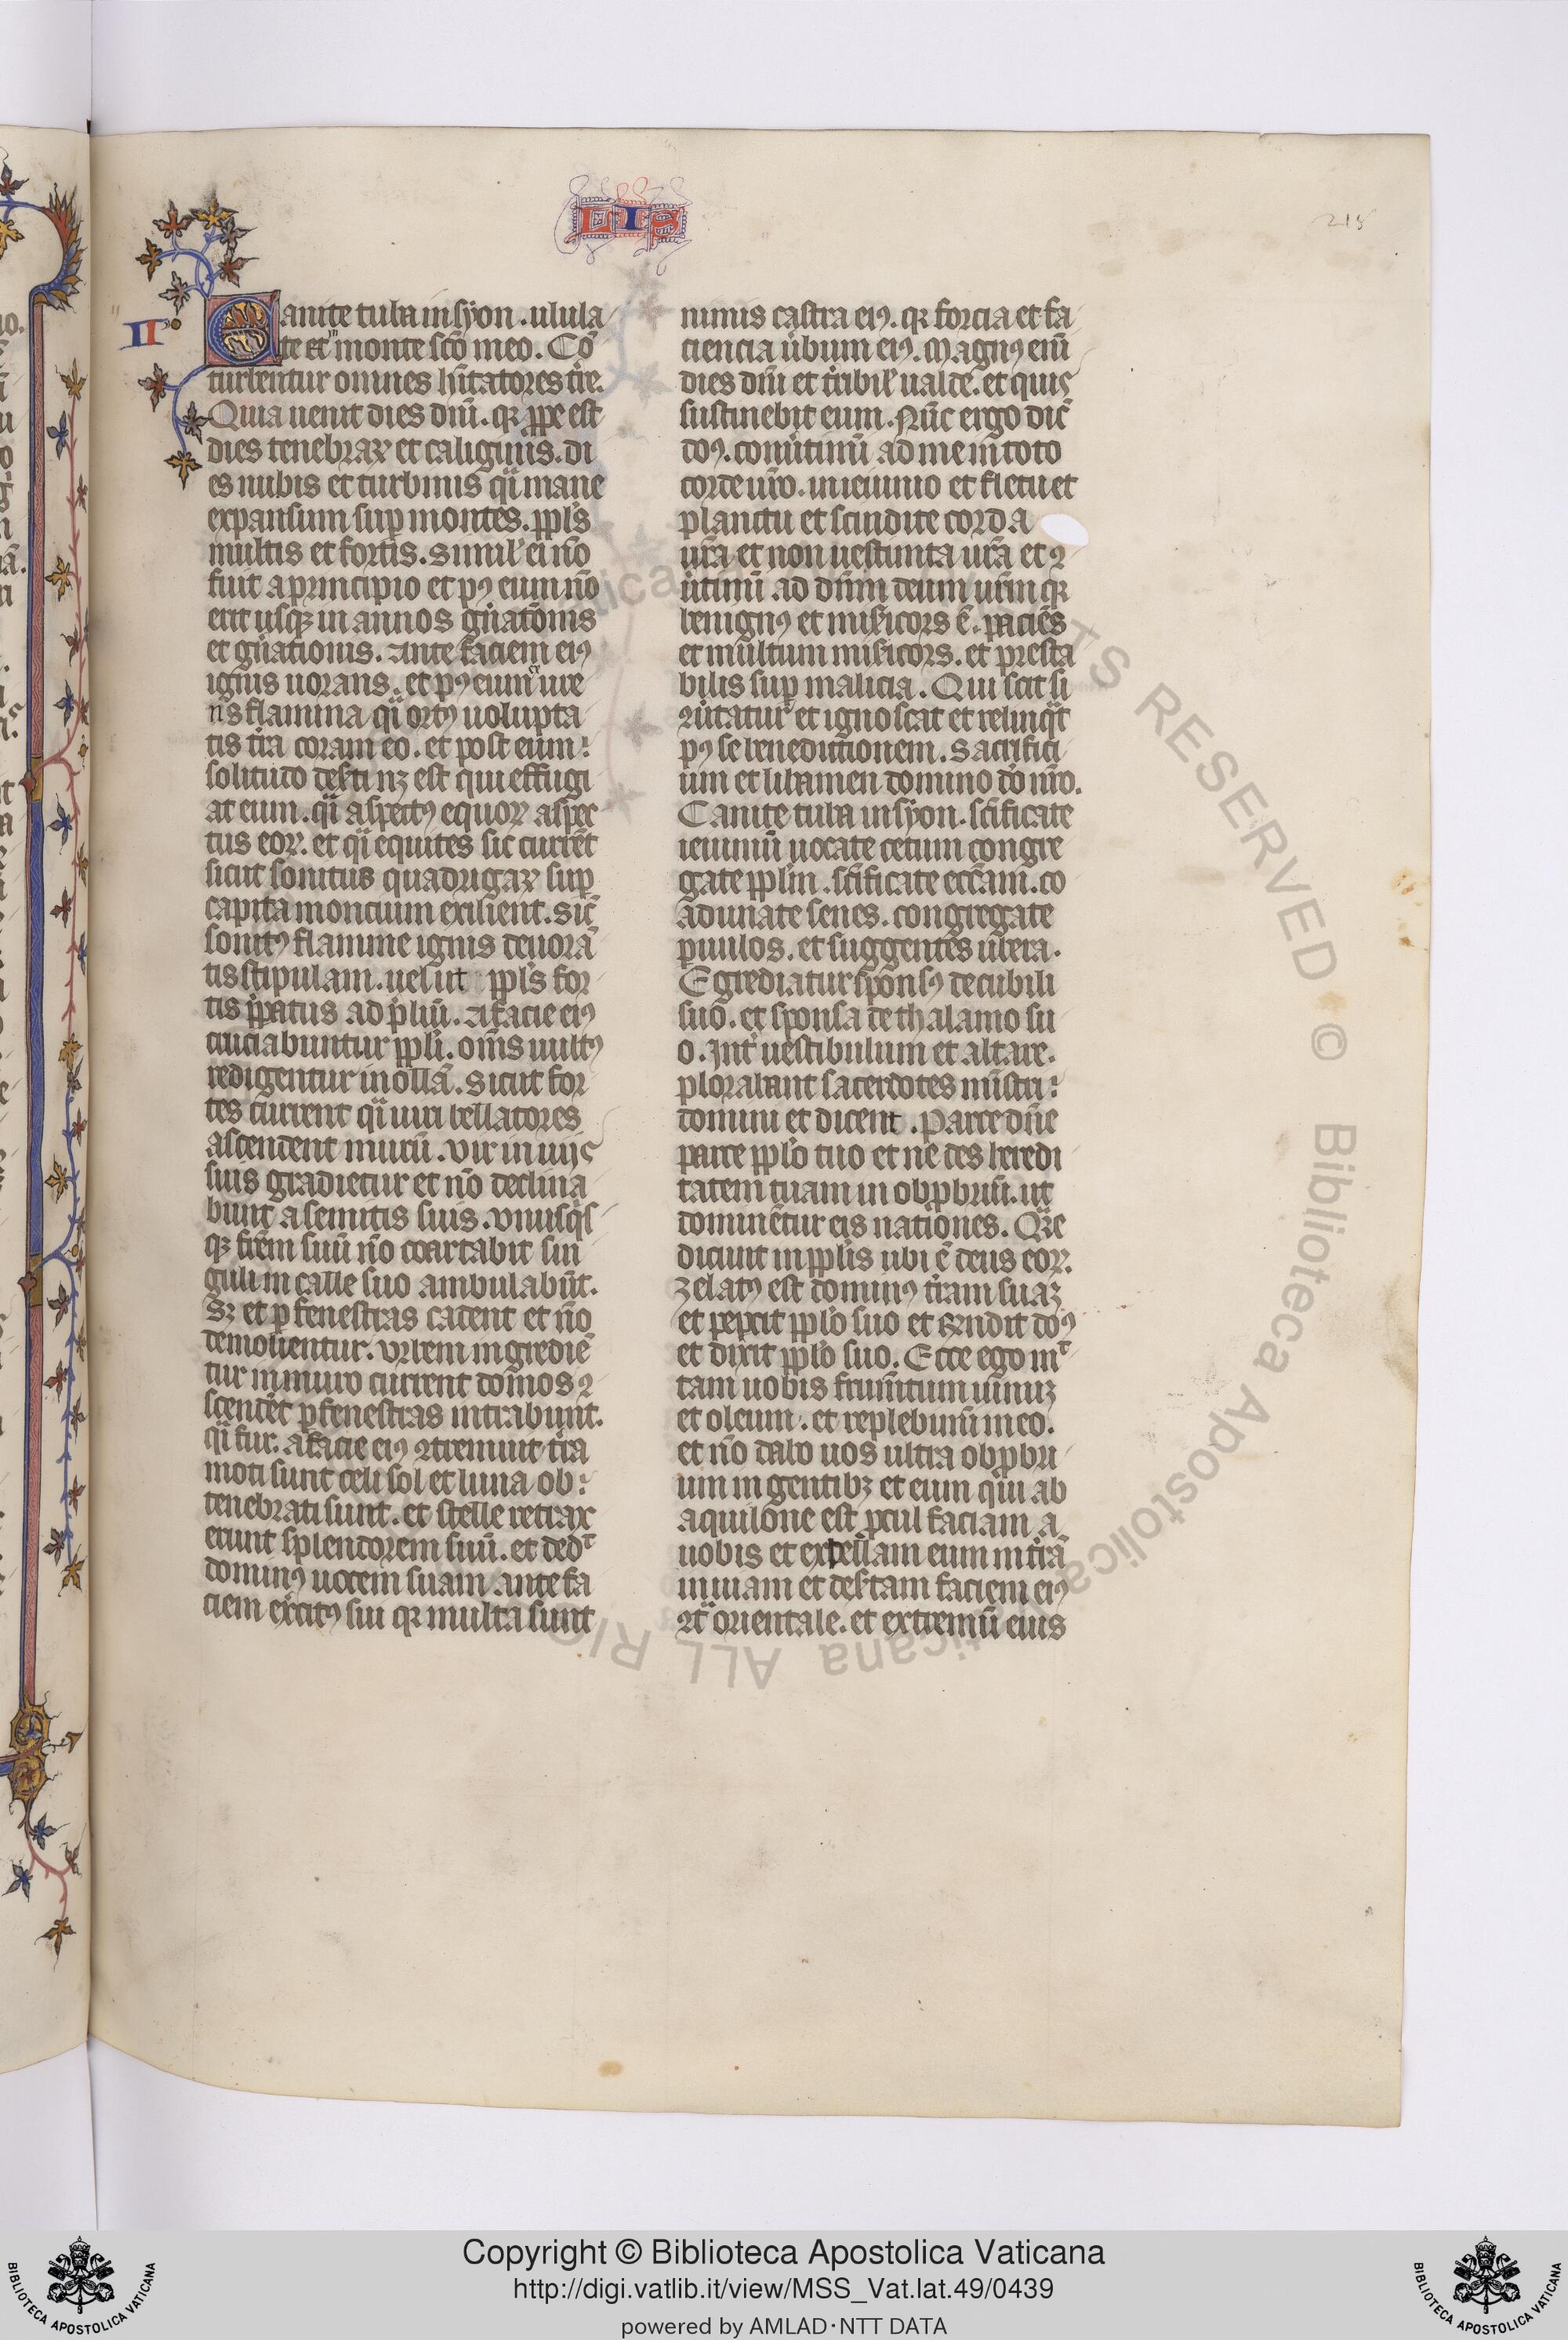 LIS
215
II°
Canite tuba in syon . ulula
te et in monte sc̄o meo. Cō
turbentur omnes hītatores tr̄e.
Quia uenit dies dn̄i. qꝛ ꝓpe est
dies tenebraꝝ et caliginis. di
es nubis et turbinis q̄i mane
expansum suꝑ montes. ppl̄s
multis et fortis. simil̓ ei nō
fuit a principio et pꝰ eum nō
erit usqꝫ in annos gn̄atōnis
et gn̄ationis. Ante faciem eiꝰ
ignis uorans. et pꝰ eum ure
ns flamma q̄i ortꝰ uolupta
tis tr̄a coram eo. et post eum
solitudo des̓ti nꝫ est qui effugi
at eum. q̄i aspectꝰ equoꝝ aspec
tus eoꝝ. et q̄i equites sic curr̄et
sicut sonitus quadrigaꝝ suꝑ
capita moncium exilient. sic̄
sonitꝰ flamme ignis deuorā
tis stipulam. uelut ppl̄s for
tis p̄patus ad p̄liū. A facie eiꝰ
cruciabuntur ppl̄i. om̄s uultꝰ
redigentur in ollā. Sicut for
tes current q̄i uiri bellatores
ascendent murū. vir in uijs
suis gradietur et nō declina
bunt a semitis suis. vnusq̓s
qꝫ fr̄em suū nō coartabit sin
guli in calle suo ambulabūt.
Sꝫ et ꝑ fenestras cadent et nō
demolientur. vrbem ingrediē
tur in muro current domos ꝯ
scendēt ꝑ fenestras intrabunt.
q̄i fur. a facie eiꝰ ꝯtremuit tr̄a
moti sunt celi sol et luna ob
tenebrati sunt. et stelle retrax
erunt splendorem suū. et ded̓
dominꝰ uocem suam ante fa
ciem ex̓citꝰ sui qꝛ multa sunt
nimis castra eiꝰ. qꝛ forcia et fa
ciencia u̓bum eiꝰ. Magnꝰ enī
dies dn̄i et tr̄ibil̓ ualde. et quis
sustinebit eum. Nūc ergo dic̄
dn̄s. conu̓timī ad me in toto
corde ur̄o. in ieiunio et fletu et
planctu et scindite corda
ur̄a et non uestimta ur̄a et ꝯ
u̓timī ad dn̄m deum ur̄m qꝛ
benignꝰ et mis̓icors ē. paciēs
et multum mis̓icors. et presta
bilis suꝑ malicia. Qui scit si
ꝯu̓tatur et ignoscat et relinq̓t
pꝰ se benedictionem. Sacrifici
um et libamen domino dō nr̄o.
Canite tuba in syon. sc̄ificate
ieiuniū uocate cetum congre
gate ppl̄m. sc̄ificate ecc̄am. co
adunate senes. congregate
ꝑuulos. et suggentes ubera.
Egrediatur sponsꝰ de cubili
suo. et sponsa de thalamo su
o. Int̓ uestibulum et altare.
plorabant sacerdotes mīstri
domini et dicent. Parce dn̄e
parce ppl̄o tuo et ne des heredi
tatem tuam in obꝓbriū. ut
dominētur eis nationes. Qr̄e
dicunt in ppl̄is ubi ē deus eoꝝ.
Zelatꝰ est dominꝰ tr̄am suaꝫ
et pepcit ppl̄o suo et r̄ndit dn̄s
et dixit ppl̄o suo. Ecce ego mit
tam uobis frum̄tum uinuꝫ
et oleum. et replebimī in eo.
et nō dabo uos ultra obꝓbri
um in gentibꝫ et eum qui ab
aquilone est ꝓcul faciam a
uobis et expellam eum in tr̄a
inuiam et des̓tam faciem eiꝰ
ꝯt̓ orientale. et extremū eius
ALL RIGHTS RESERVED © Biblioteca Apostolica Vaticana
Copyright © Biblioteca Apostolica Vaticana
http://digi.vatlib.it/view/MSS_Vat.lat.49/0439
powered by AMLAD·NTT DATA
BIBLIOTECA APOSTOLICA VATICANA
BIBLIOTECA APOSTOLICA VATICANA